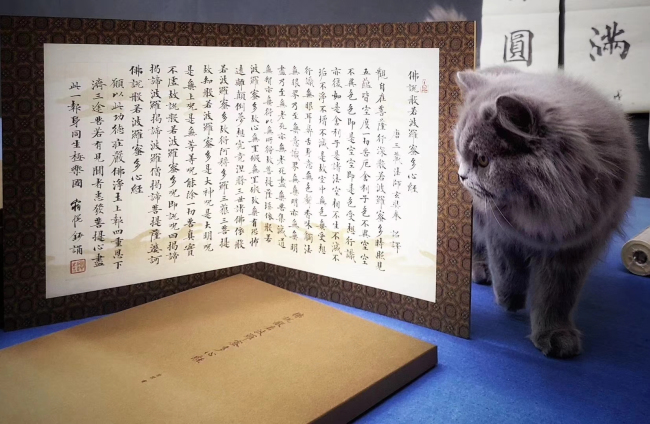 佛說般若波羅蜜多心經
唐三藏法師玄奘奉 詔譯
觀自在菩薩行深般若波羅蜜多時照見
五蘊皆空度一切苦厄舍利子色不異空空
不異色色即是空空即是色受想行識
亦復如是舍利子是諸法空相不生不滅不
垢不淨不增不減是故空中無色無受想
行識無眼耳鼻舌身意無色聲香味觸法
無眼界乃至無意識界無無明亦無無明
盡乃至無老死亦無老死盡無苦集滅道
無智亦無得以無所得故菩提薩埵依般若
波羅蜜多故心無罣礙無罣礙故無有恐怖
遠離顛倒夢想究竟涅槃三世諸佛依般
若波羅蜜多故得阿耨多羅三藐三菩提
故知般若波羅蜜多是大神咒是大明咒
是無上咒是無等等咒能除一切苦真實
不虛故說般若波羅蜜多咒即說咒曰揭諦
揭諦波羅揭諦波羅僧揭諦菩提薩婆訶
佛說般若波羅蜜多心經
願以此功德莊嚴佛淨土上報四重恩下
濟三途苦若有見聞者悉發菩提心盡
此一報身同生極樂國
滿
圓
佛說般若波羅蜜多心經